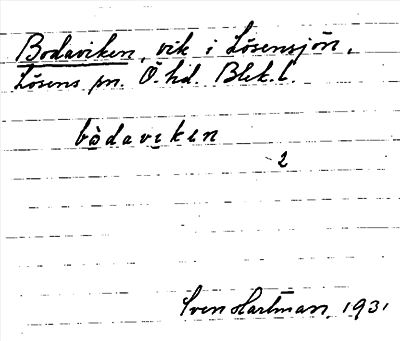 Bodaviken, vik i Lösensjön,
Lösens sn. Ö. hd. Blek. l.
bòdavikɛn
2
Sven Hartman, 1931